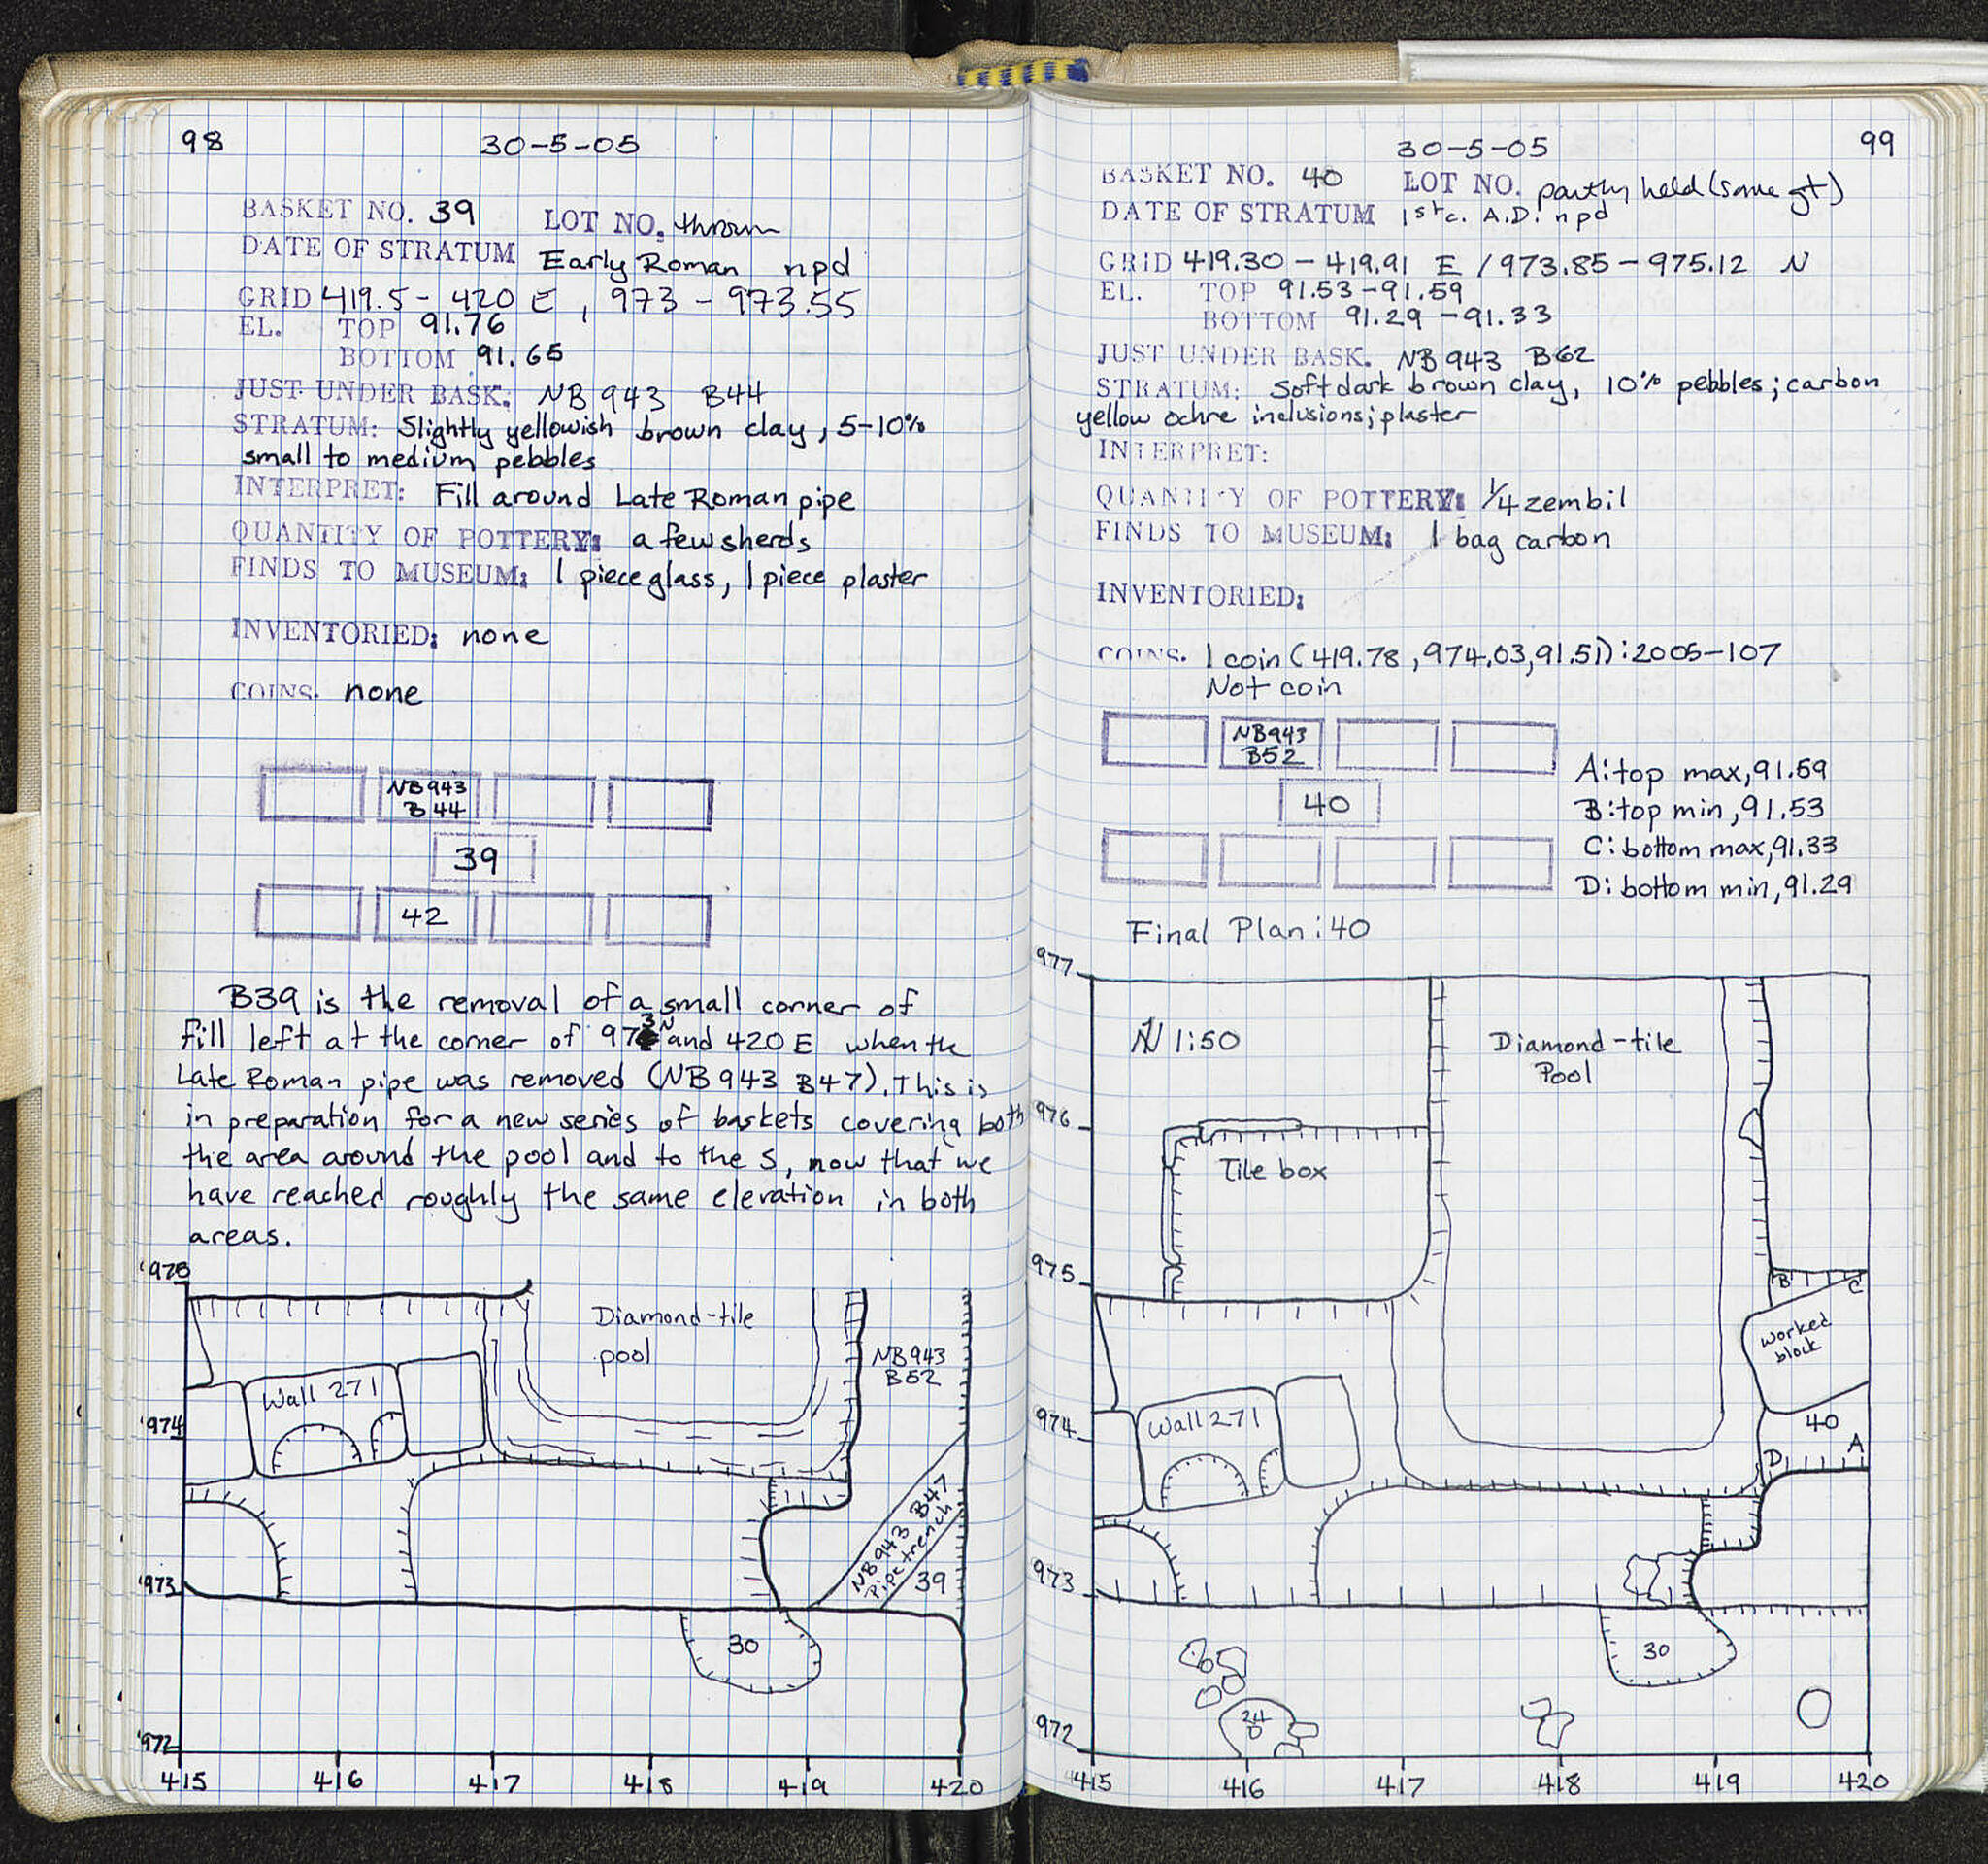 98
30-5-05
BASKET NO. 39 LOT NO. thrown
DATE OF STRATUM Early Roman npd
GRID 419.5 - 420 E, 973 - 973.55
EL. TOP 91.76
BOTTOM 91.65
JUST UNDER BASK: NB 943 B44
STRATUM: Slightly yellowish brown clay, 5-10%
small to medium pebbles
INTERPRET: Fill around Late Roman pipe
QUANTITY OF POTTERY: a few sherds
FINDS TO MUSEUM: 1 piece glass, 1 piece plaster
INVENTORIED: none
COINS. none
NB943
B44
39
42
B39 is the removal of a small corner of
fill left at the corner of 973 N and 420 E when the
Late Roman pipe was removed (NB 943 B47). This is
in preparation for a new series of baskets covering both
the area around the pool and to the S, now that we
have reached roughly the same elevation in both
areas.
975
974
973
972
415 416 417 418 419 420
Diamond-tile
pool
NB943
B52
Wall 271
NB943 B47
Pipe trench
39
30
30-5-05
99
BASKET NO. 40 LOT NO. partly held (some gt)
DATE OF STRATUM 1st c. A.D. npd
GRID 419.30 - 419.91 E / 973.85 - 975.12 N
EL. TOP 91.53-91.59
BOTTOM 91.29-91.33
JUST UNDER BASK. NB 943 B62
STRATUM: Soft dark brown clay, 10% pebbles; carbon
yellow ochre inclusions; plaster
INTERPRET:
QUANTITY OF POTTERY: 1/4 zembil
FINDS TO MUSEUM: 1 bag carbon
INVENTORIED:
COINS. 1 coin (419.78, 974.03, 91.51): 2005-107
Not coin
NB943
B52
40
A: top max, 91.59
B: top min, 91.53
C: bottom max, 91.33
D: bottom min, 91.29
Final Plan: 40
977
976
975
974
973
972
415 416 417 418 419 420
N 1:50
Diamond-tile
Pool
Tile box
B
C
worked
block
Wall 271
40
A
D
30
24